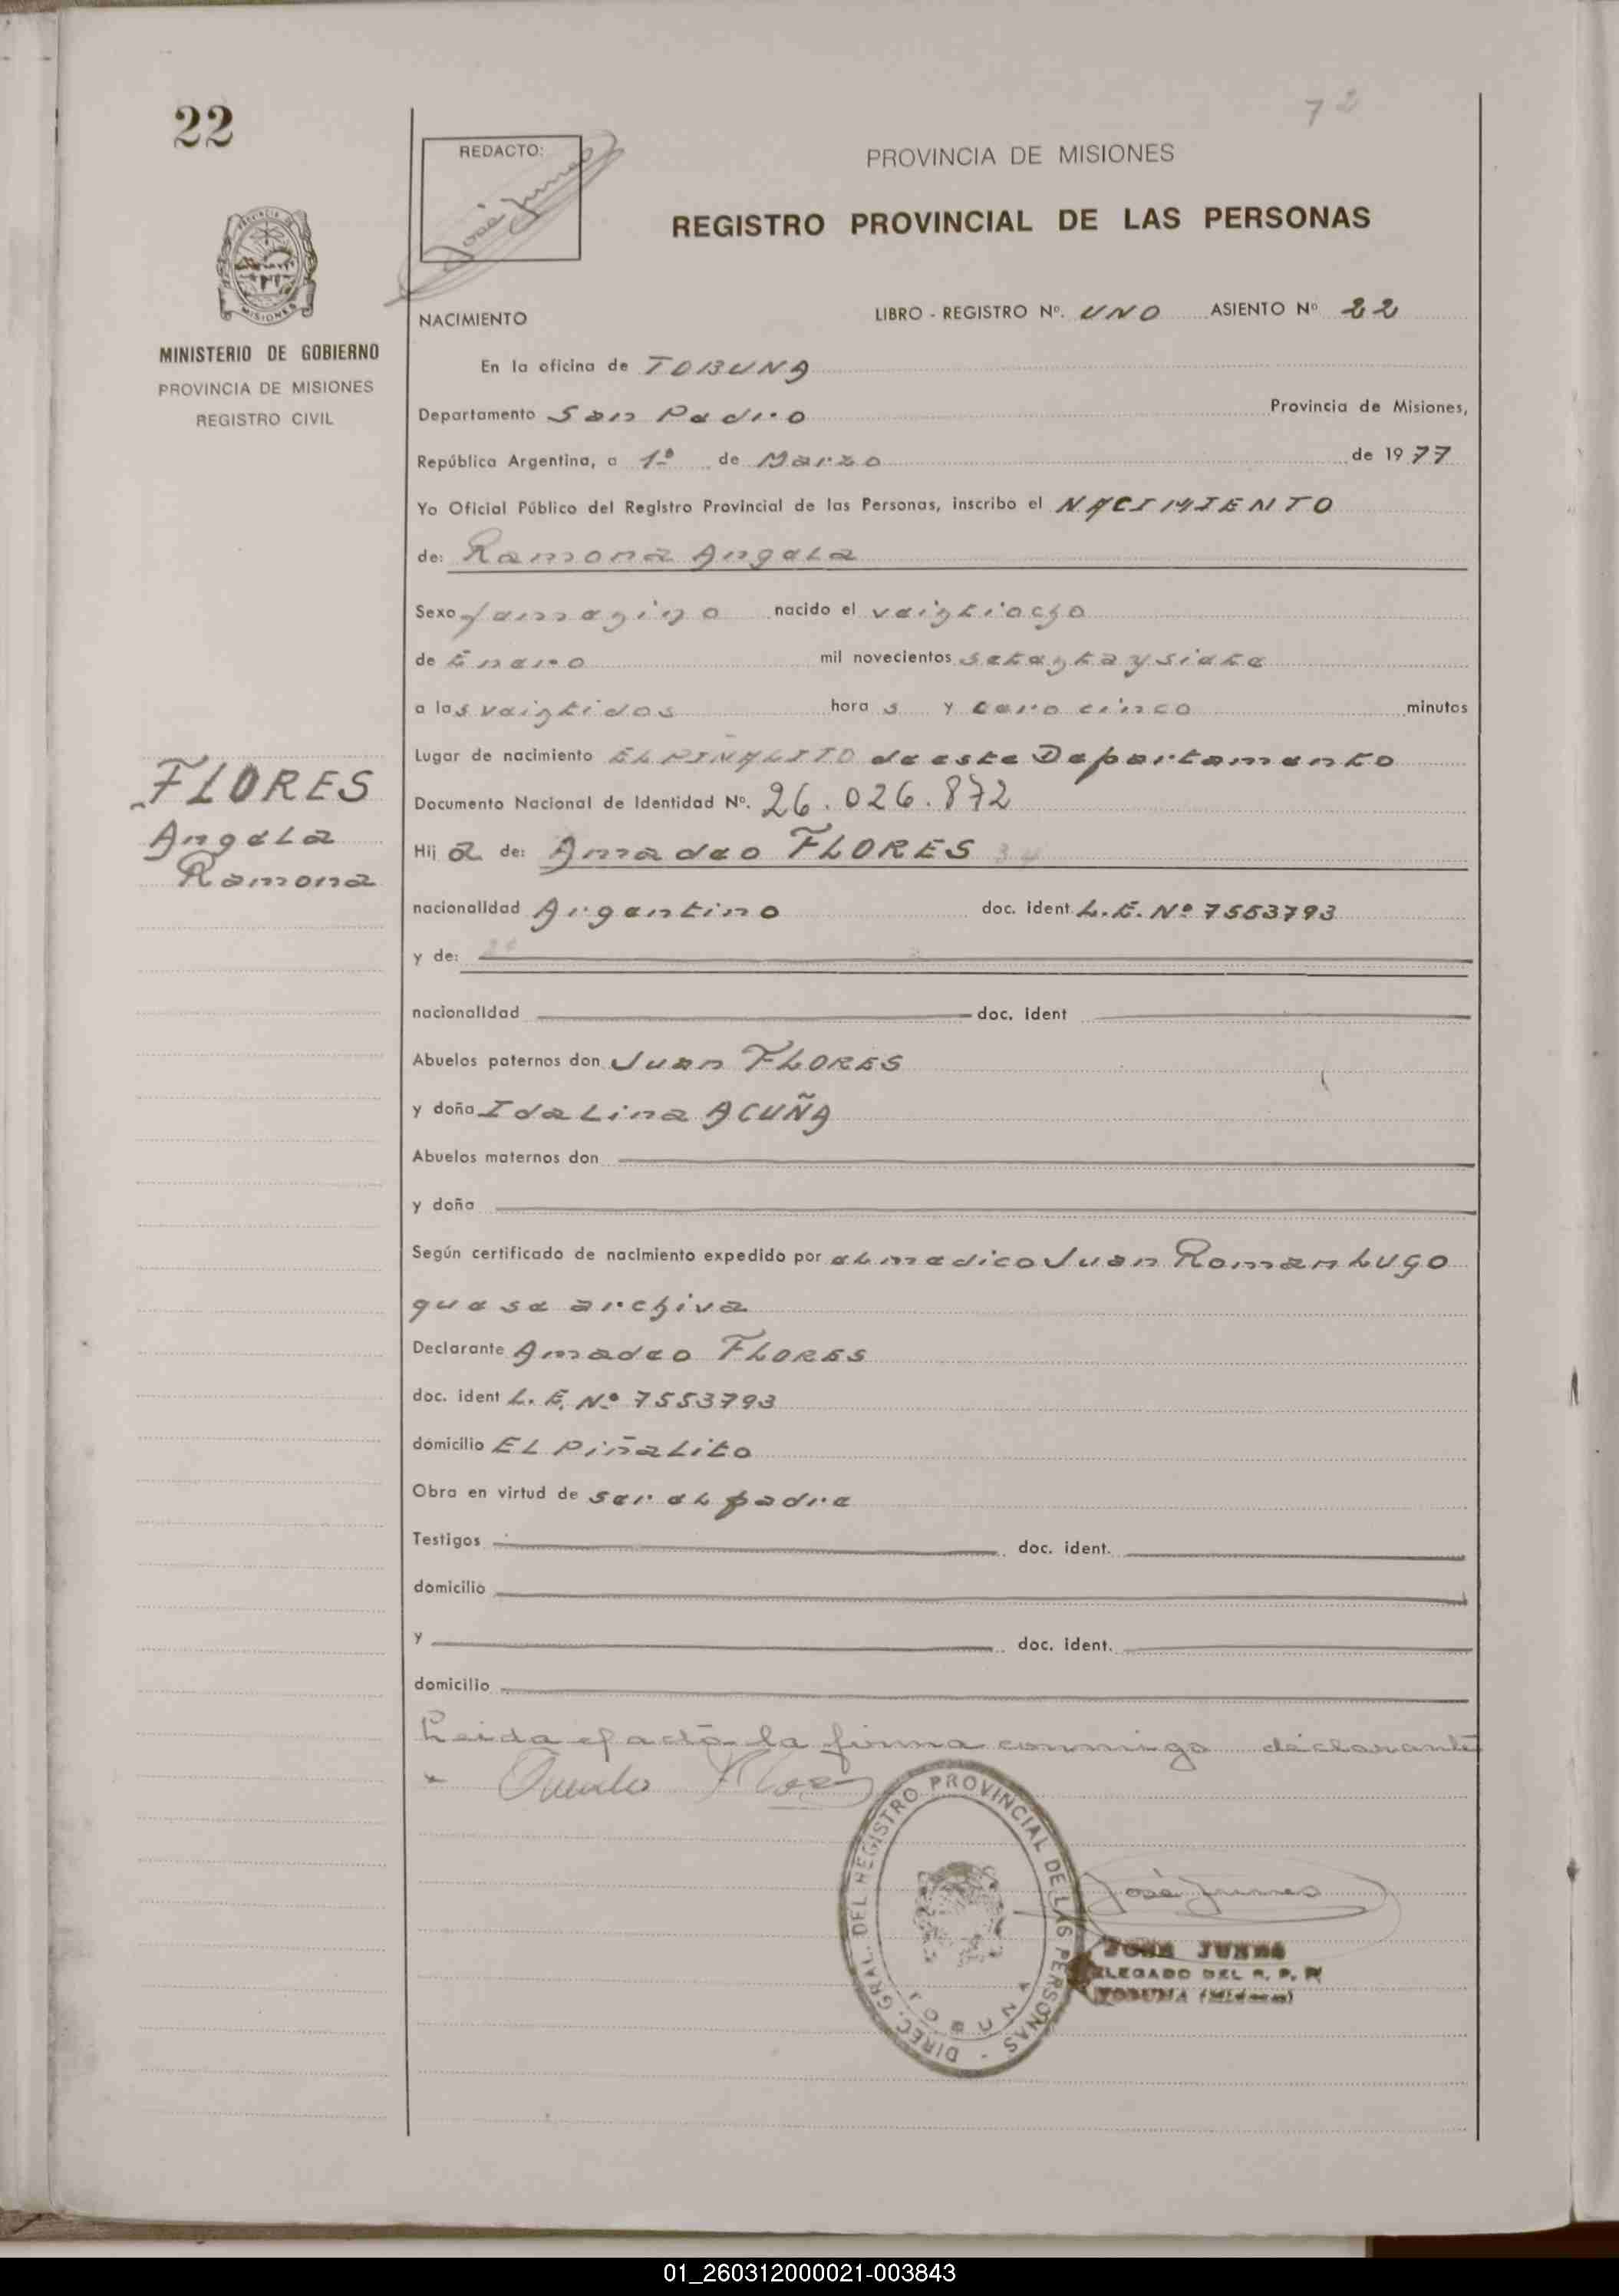 22
72
REDACTO:
PROVINCIA DE MISIONES
REGISTRO PROVINCIAL DE LAS PERSONAS
MISIONES
MINISTERIO DE GOBIERNO
PROVINCIA DE MISIONES
REGISTRO CIVIL
NACIMIENTO LIBRO - REGISTRO Nº. UNO ASIENTO Nº 22
En la oficina de TOBUNA
Departamento San Pedro Provincia de Misiones,
República Argentina, a 1º de Marzo de 1977
Yo Oficial Público del Registro Provincial de las Personas, inscribo el NACIMIENTO
de: Ramona Angela
Sexo femenino nacido el veintiocho
de Enero mil novecientos setenta y siete
a las veintidos hora s y cero cinco minutos
Lugar de nacimiento EL PIÑALITO de este Departamento
Documento Nacional de Identidad Nº. 26.026.872
FLORES
Angela
Ramona
Hij a de: Amadeo FLORES 34
nacionalidad Argentino doc. ident. L.E. Nº 7553793
y de:
nacionalidad doc. ident
Abuelos paternos don Juan FLORES
y doña Idalina ACUÑA
Abuelos maternos don
y doña
Según certificado de nacimiento expedido por el medico Juan Roman Lugo
que se archiva
Declarante Amadeo FLORES
doc. ident L. E. Nº 7553793
domicilio EL Piñalito
Obra en virtud de ser el padre
Testigos doc. ident.
domicilio
y doc. ident.
domicilio
Leida el acta la firma conmigo declarante
DIREC. GRAL. DEL REGISTRO PROVINCIAL DE LAS PERSONAS -
TOBUNA
José Junes
JOSE JUNES
DELEGADO DEL R. P. P.
TOBUNA (Misiones)
01_260312000021-003843